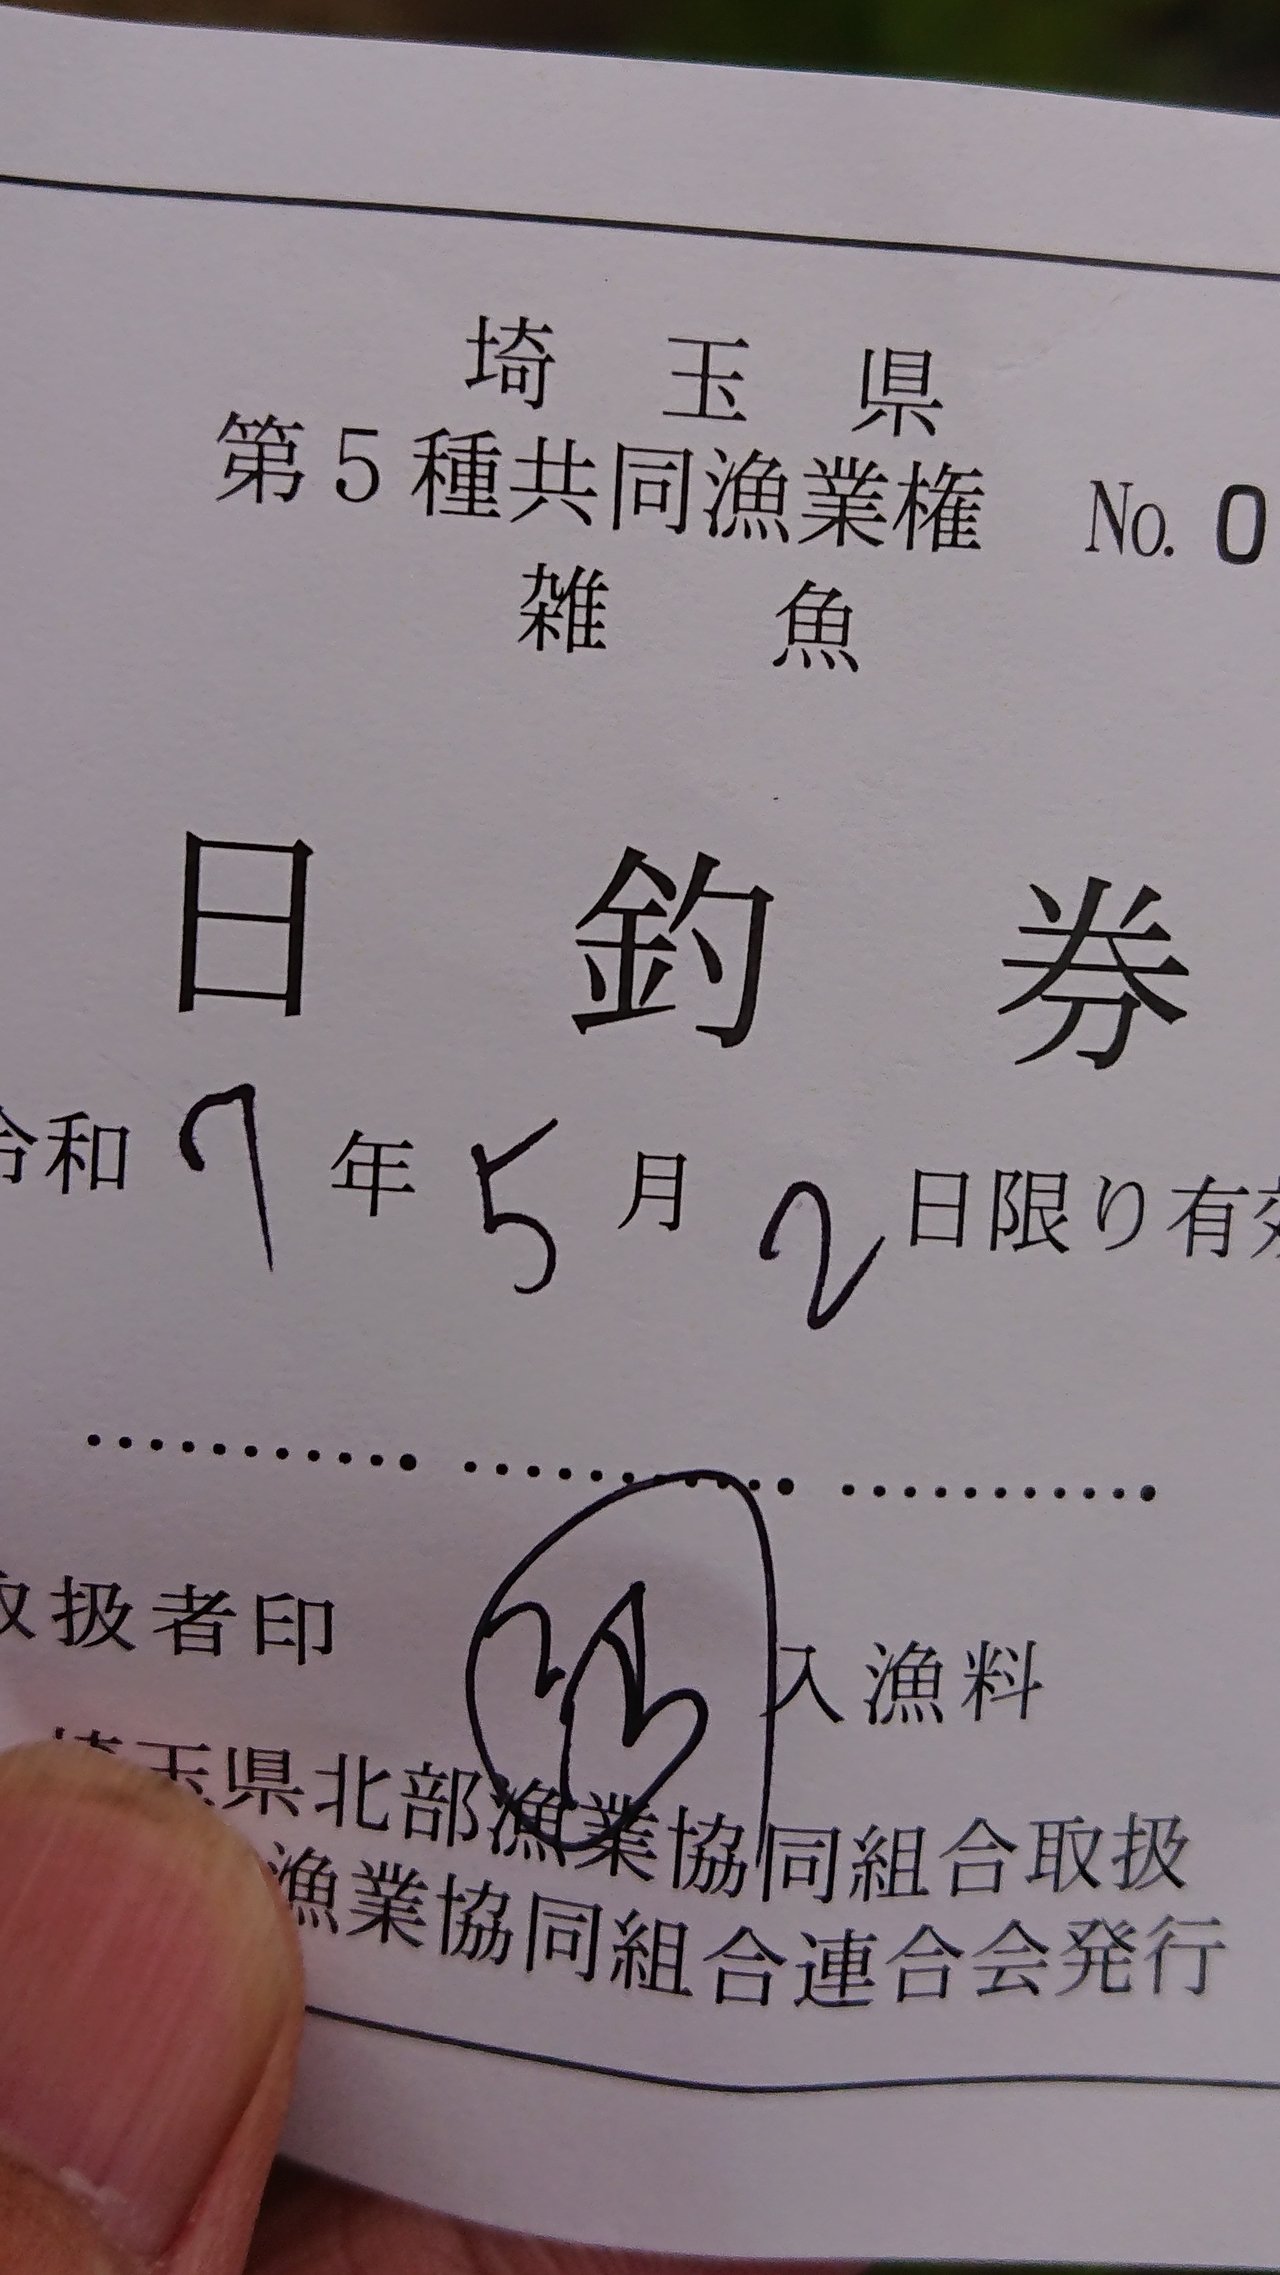 埼玉県
第5種共同漁業権 No.0
雑魚
日釣券
令和7年5月2日限り有効
取扱者印 入漁料
埼玉県北部漁業協同組合取扱
漁業協同組合連合会発行